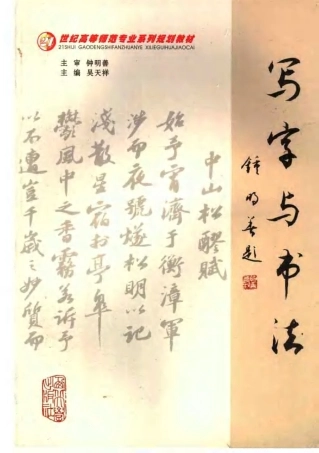 21世纪高等师范专业系列规划教材
21SHIJI GAODENGSHIFANZHUANYE XILIEGUIHUAJIAOCAI
主 审 钟明善
主 编 吴天祥
写字与书法
钟明善题
中山松醪赋
始予宵濟于衡漳軍
涉而夜號燧松明以記
淺散星宿於亭皋
鬱風中之香霧若訴予
以不遭豈千歲之妙質而